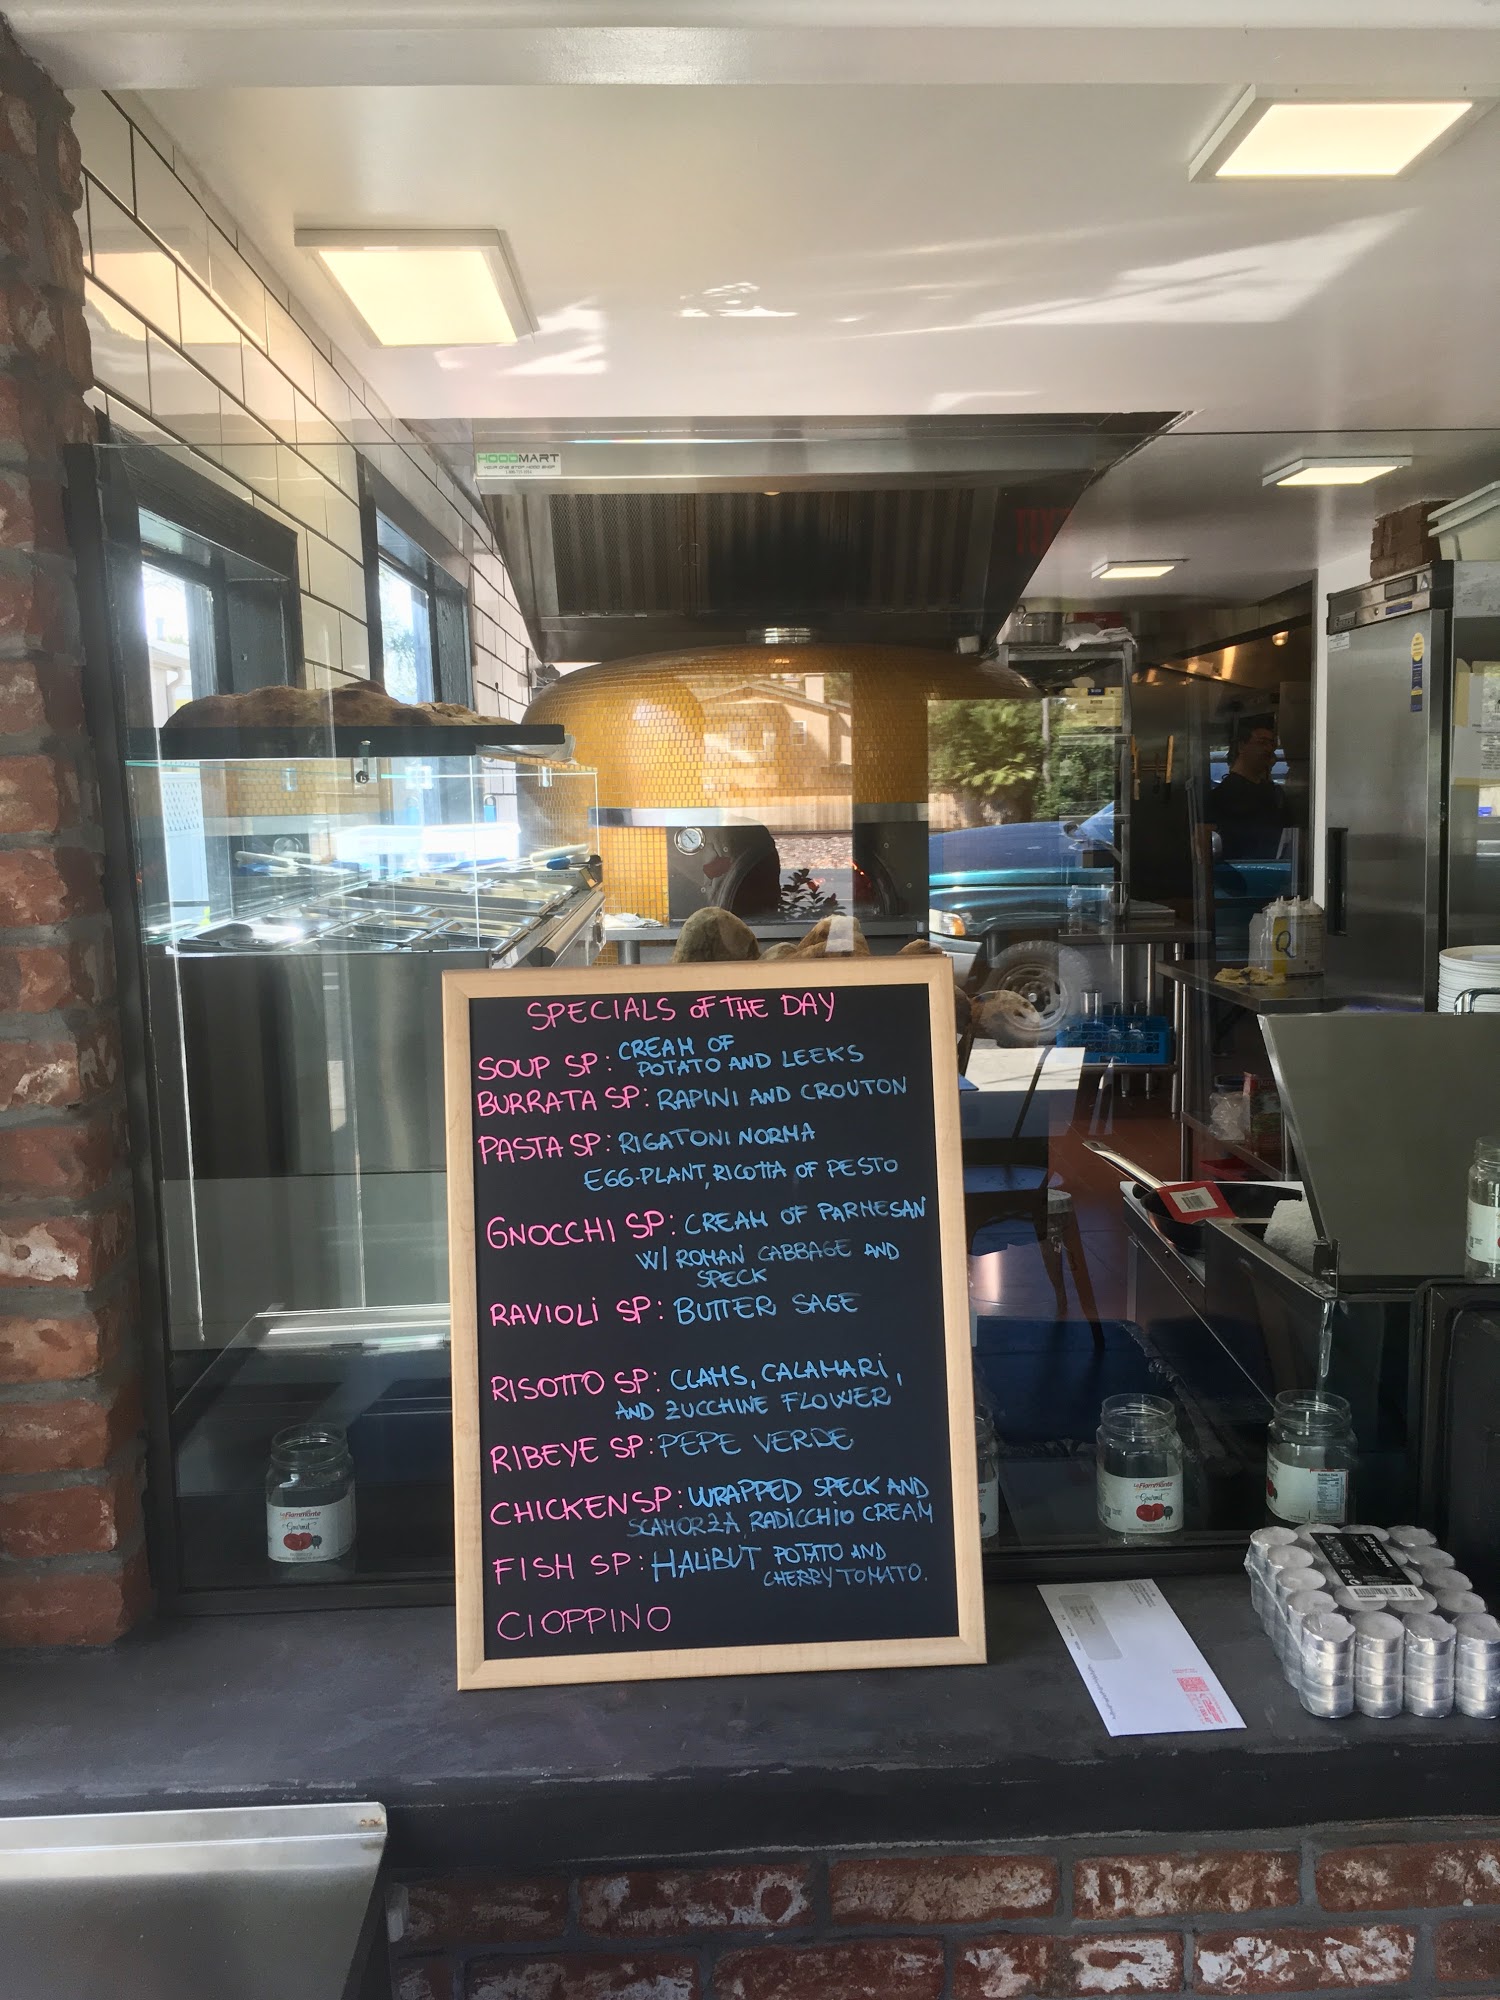 HOODMART
YOUR ONE STOP HOOD SHOP
SPECIALS OF THE DAY
SOUP SP: CREAM OF
POTATO AND LEEKS
BURRATA SP: RAPINI AND CROUTON
PASTA SP: RIGATONI NORMA
EGG-PLANT, RICOTTA OF PESTO
GNOCCHI SP: CREAM OF PARMESAN
W/ ROMAN CABBAGE AND
SPECK
RAVIOLI SP: BUTTER SAGE
RISOTTO SP: CLAMS, CALAMARI,
AND ZUCCHINE FLOWER
RIBEYE SP: PEPE VERDE
CHICKEN SP: WRAPPED SPECK AND
SCAMORZA, RADICCHIO CREAM
FISH SP: HALIBUT POTATO AND
CHERRY TOMATO.
CIOPPINO
La Fiammante
Gourmet
La Fiammante
Gourmet
Q